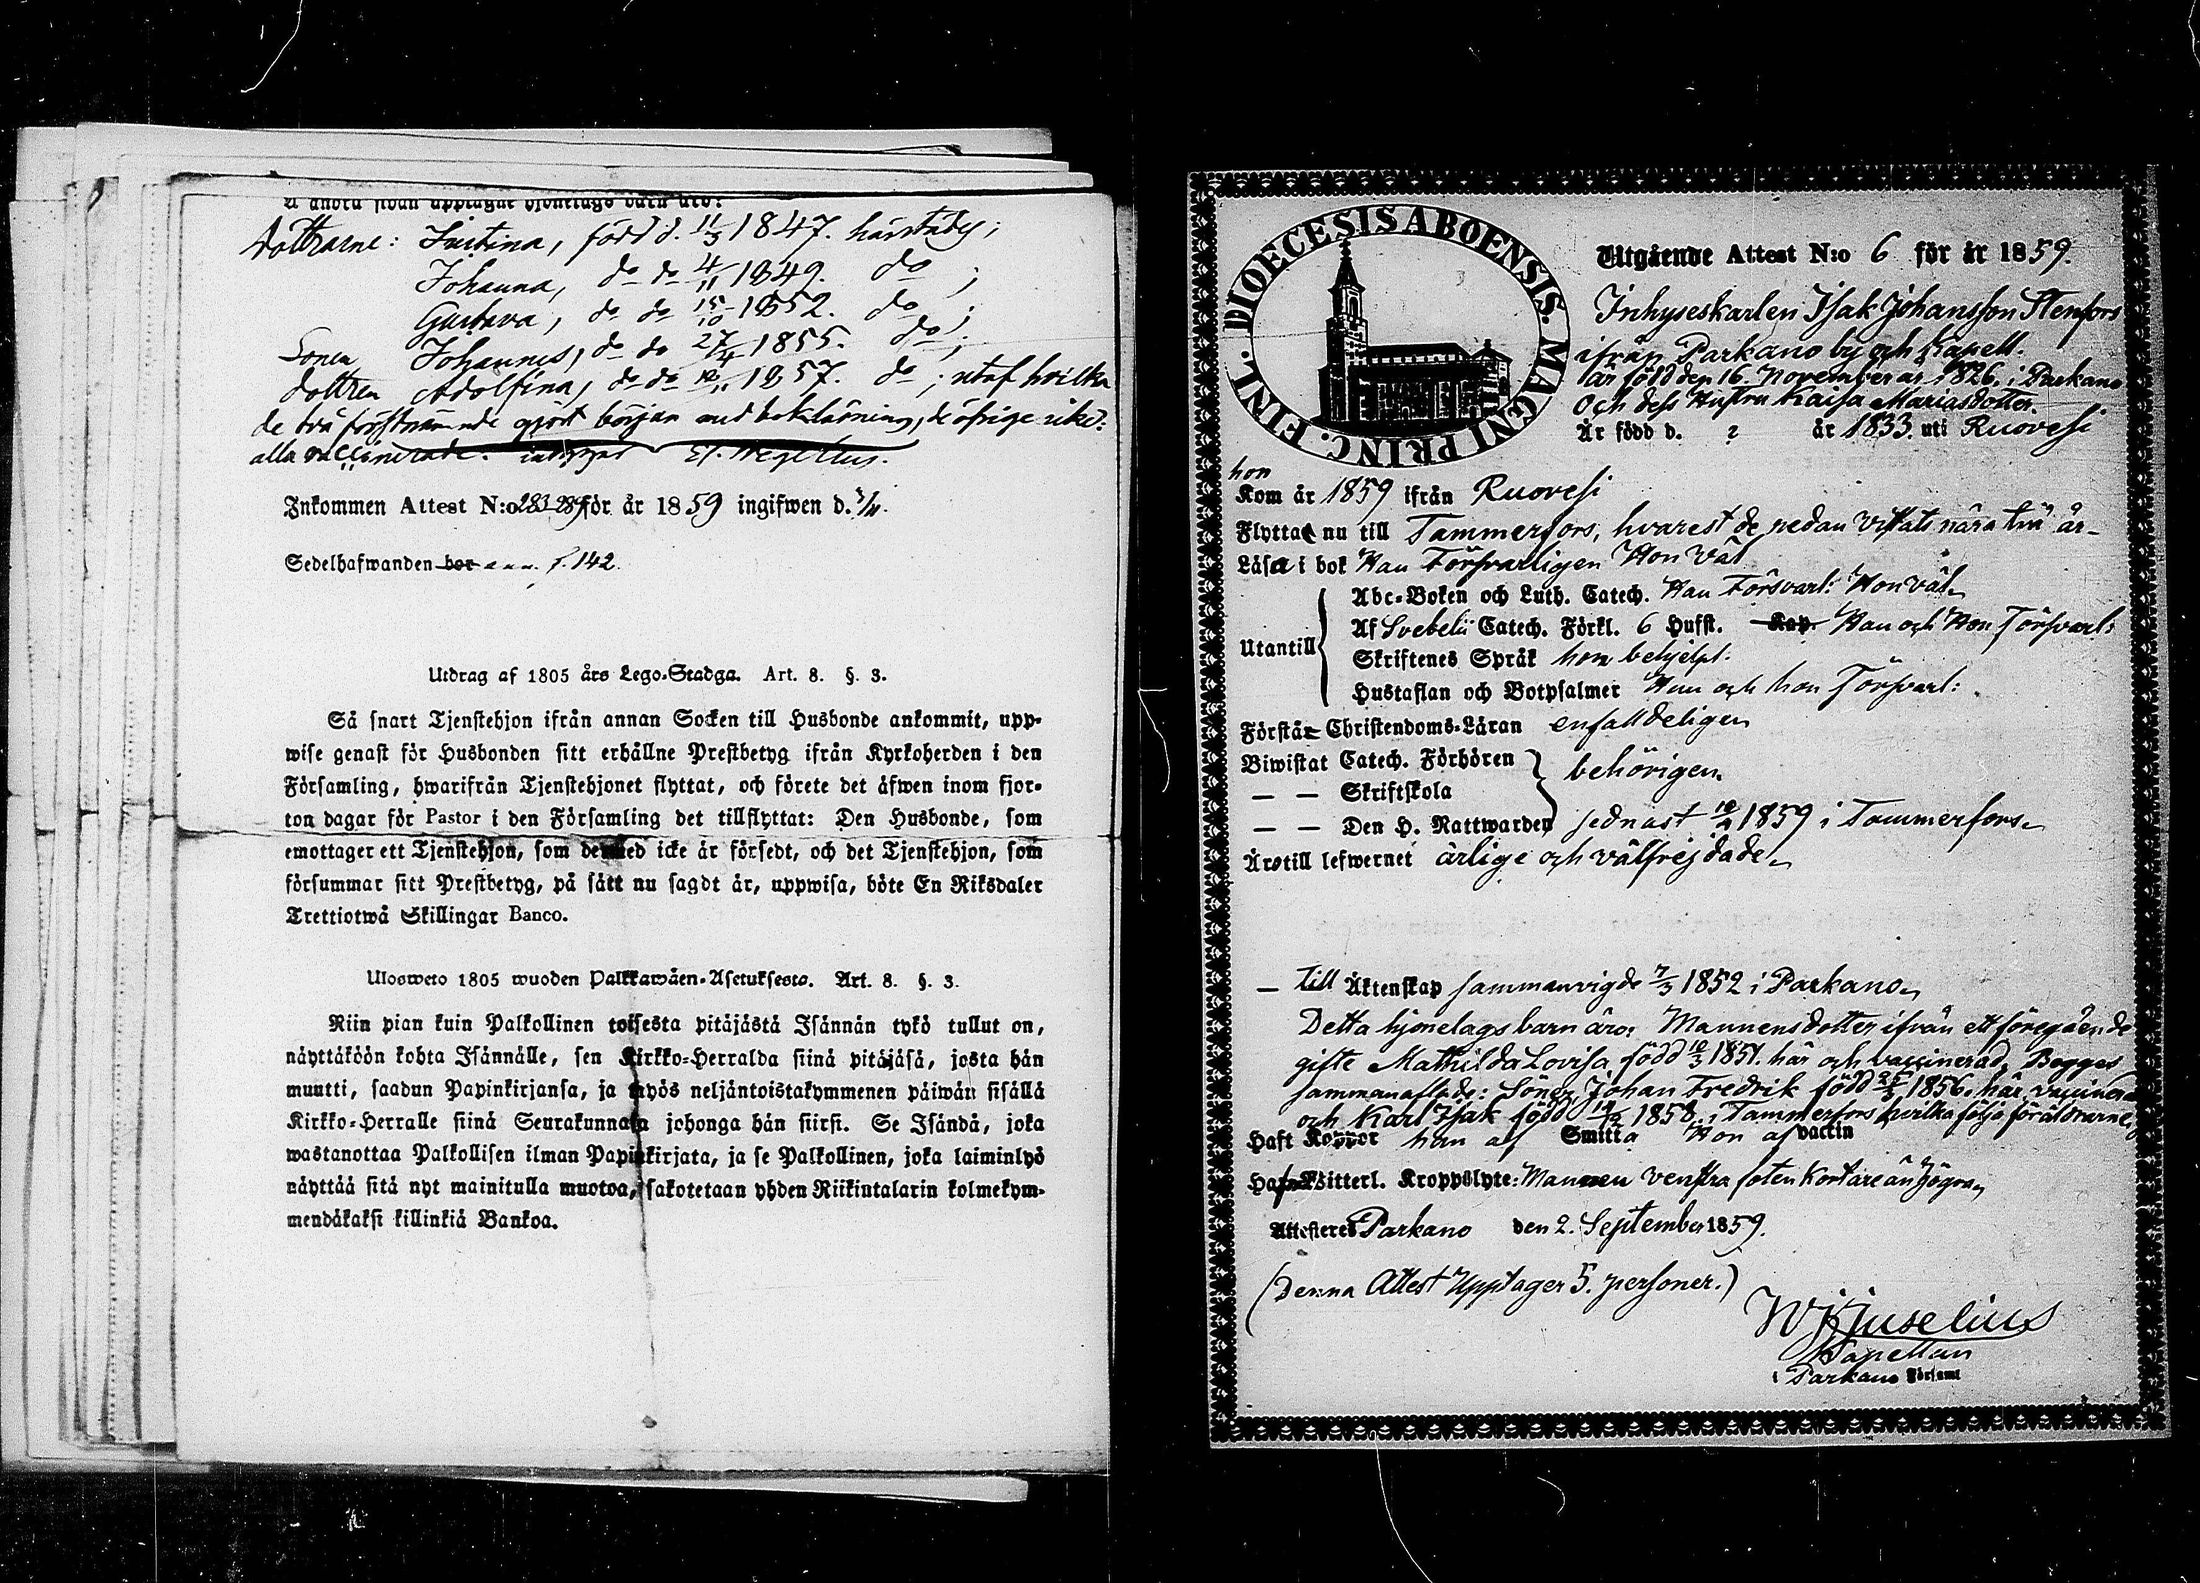 å andra sidan upptagne hjonelags barn äro:
Döttrarne: Justina, född d. 11/3 1847. härstädes;
Johanna, do do 4/11 1849. do ;
Gustava, do do 15/10 1852. do ;
Sonen Johannes, do do 27/4 1855. do ;
dottren Adolfina, do do 1857. do ; utaf hvilka
de två förstnämnde gjort början med boklärning, de öfrige icke:
alla vaccinerade.
Inkommen Attest N:o 283-289 för år 1859 ingifwen d.
Sedelhafwanden bor f. 142.
Utdrag af 1805 års Lego-Stadga. Art. 8. §. 3.
Så snart Tjenstehjon ifrån annan Socken till Husbonde ankommit, upp-
wise genast för Husbonden sitt erhållne Prestbetyg ifrån Kyrkoherden i den
Församling, hwarifrån Tjenstehjonet flyttat, och förete det äfwen inom fjor-
ton dagar för Pastor i den Församling det tillflyttat: Den Husbonde, som
emottager ett Tjenstehjon, som dermed icke är försedt, och det Tjenstehjon, som
försummar sitt Prestbetyg, på sätt nu sagdt är, uppwisa, böte En Riksdaler
Trettiotwå Skillingar Banco.
Ulosweto 1805 wuoden Palkkawäen-Asetuksesta. Art. 8. §. 3.
Niin pian kuin Palkollinen toisesta pitäjästä Isännän tykö tullut on,
näyttäköön kohta Isännälle, sen Kirkko-Herralda siinä pitäjäsä, josta hän
muutti, saadun Papinkirjansa, ja myös neljäntoistakymmenen päiwän sisällä
Kirkko-Herralle siinä Seurakunnasa johonga hän siirsi. Se Isändä, joka
wastanottaa Palkollisen ilman Papinkirjata, ja se Palkollinen, joka laiminlyö
näyttää sitä nyt mainitulla muotoa, sakotetaan yhden Riikintalarin kolmekym-
mendäkaksi killinkiä Bankoa.
DIOECESIS ABOENSIS. MAGNI PRINC. FINL.
Utgående Attest N:o 6 för år 1859.
Inhyseskarlen Isak Johansson Stenfors
ifrån Parkano by och Kapell.
är född den 16. November år 1826. i Parkano
Och dess Hustru Kaisa Mariasdotter.
Är född d. ? år 1833. uti Ruovesi
hon
Kom år 1859 ifrån Ruovesi
Flyttat nu till Tammerfors, hvarest de redan vistats nära två år-
Läsa i bok Han Försvarligen Hon väl
Abc-Boken och Luth. Catech. Han Försvarl: Hon väl
Utantill
Af Svebelii Catech. Förkl. 6 Hufst. Kap. Han och Hon Försvarl:
Skriftenes Språk hon behjelpl.
Hustaflan och Botpsalmer Han och hon Försvarl:
Förstår Christendoms-Läran enfalldeligen
Biwistat Catech. Förhören
— — Skriftskola
behörigen
— — Den H. Nattwarden sednast 1859 i Tammerfors
Äro till lefwernet ärlige och välfrejdade
— till Äktenskap sammanvigde 7/3 1852 i Parkano
Detta hjonelags barn äro: Mannens dotter ifrån ett föregående
gifte Mathilda Lovisa född 10/3 1851. här och vaccinerad. Begges
sammanaflade: Söner, Johan Fredrik född 1856. här, vaccinerad
och Karl Isak född 1858. i Tammerfors hvilka följa föräldrarne,
Haft Koppor han af Smitta Hon af vaccin
Kroppslyte: Mannen venstra foten kortare än högra
Attesteres Parkano den 2. September 1859.
(Denna Attest Upptager 5. personer.)
Juselius
Kapellan
i Parkano Församl